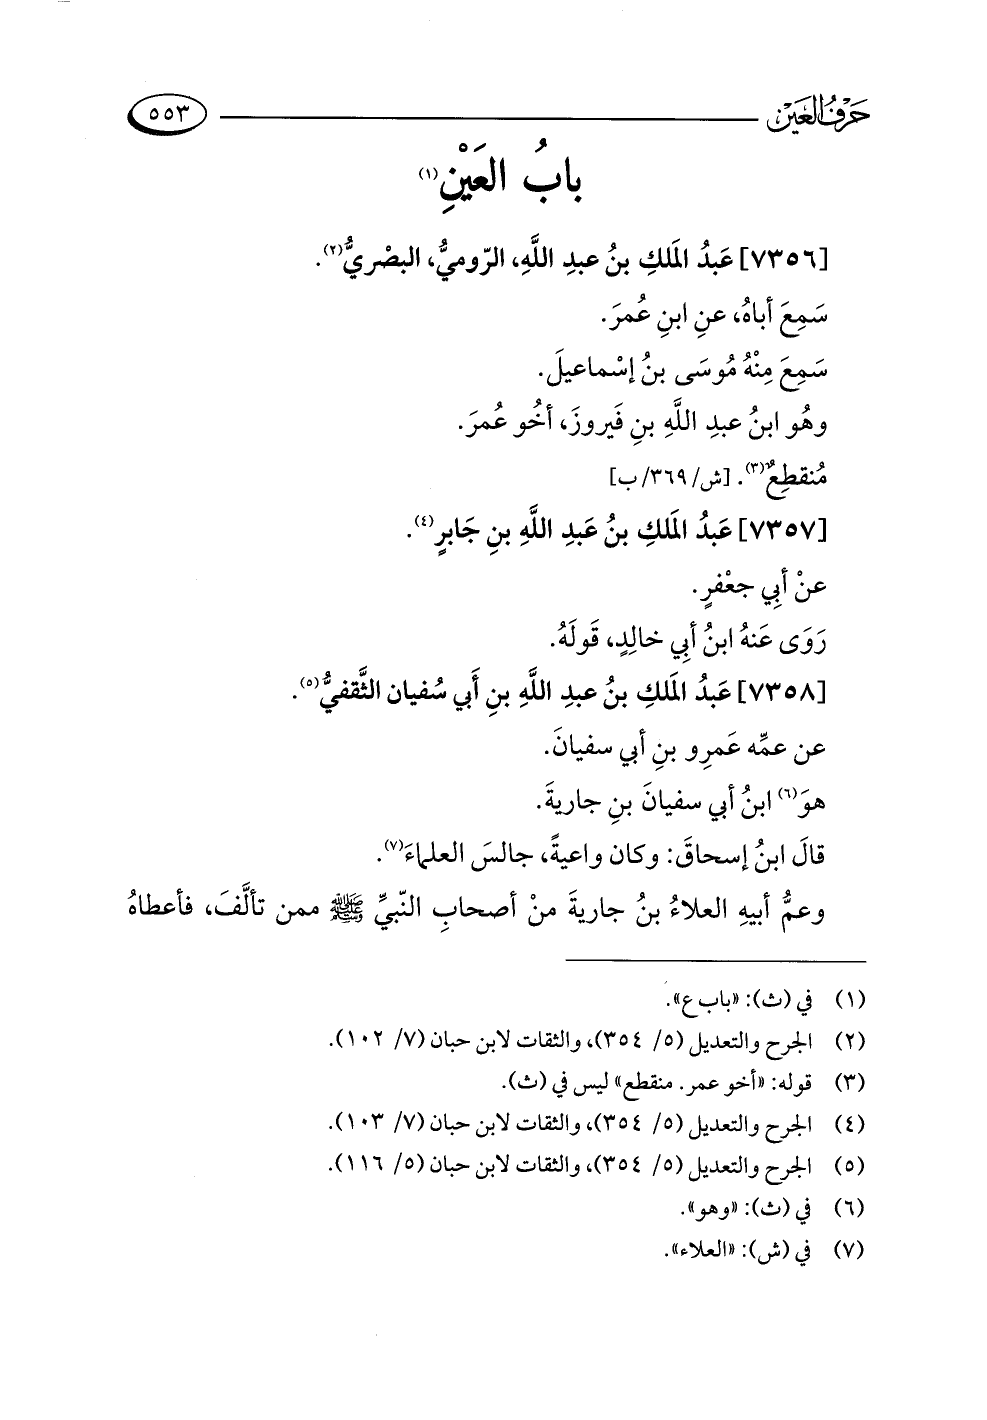 حَرْفُ العَيْن ٥٥٣
بابُ العَيْنِ(١)
[٧٣٥٦] عَبدُ المَلكِ بنُ عبدِ اللَّهِ، الرّوميُّ، البصْريُّ(٢).
سَمِعَ أباهُ، عنِ ابنِ عُمرَ.
سَمِعَ مِنْهُ مُوسَى بنُ إسْماعيلَ.
وهُو ابنُ عبدِ اللَّهِ بنِ فَيروزَ، أخُو عُمرَ.
مُنقطِعٌ(٣). [ش/ ٣٦٩/ ب]
[٧٣٥٧] عَبدُ المَلكِ بنُ عَبدِ اللَّهِ بنِ جَابرٍ(٤).
عنْ أبِي جعْفرٍ.
رَوَى عَنهُ ابنُ أبِي خالِدٍ، قَولَهُ.
[٧٣٥٨] عَبدُ المَلكِ بنُ عبدِ اللَّهِ بنِ أَبي سُفيان الثَّقفيُّ(٥).
عن عمِّه عَمرِو بنِ أبي سفيانَ.
هوَ(٦) ابنُ أبي سفيانَ بنِ جاريةَ.
قالَ ابنُ إسحاقَ: وكان واعيةً، جالسَ العلماءَ(٧).
وعمُّ أبيهِ العلاءُ بنُ جاريةَ منْ أصحابِ النّبيِّ ﷺ ممن تألَّفَ، فأعطاهُ
(١) في (ث): «باب ع».
(٢) الجرح والتعديل (٥/ ٣٥٤)، والثقات لابن حبان (٧/ ١٠٢).
(٣) قوله: «أخو عمر. منقطع» ليس في (ث).
(٤) الجرح والتعديل (٥/ ٣٥٤)، والثقات لابن حبان (٧/ ١٠٣).
(٥) الجرح والتعديل (٥/ ٣٥٤)، والثقات لابن حبان (٥/ ١١٦).
(٦) في (ث): «وهو».
(٧) في (ش): «العلاء».